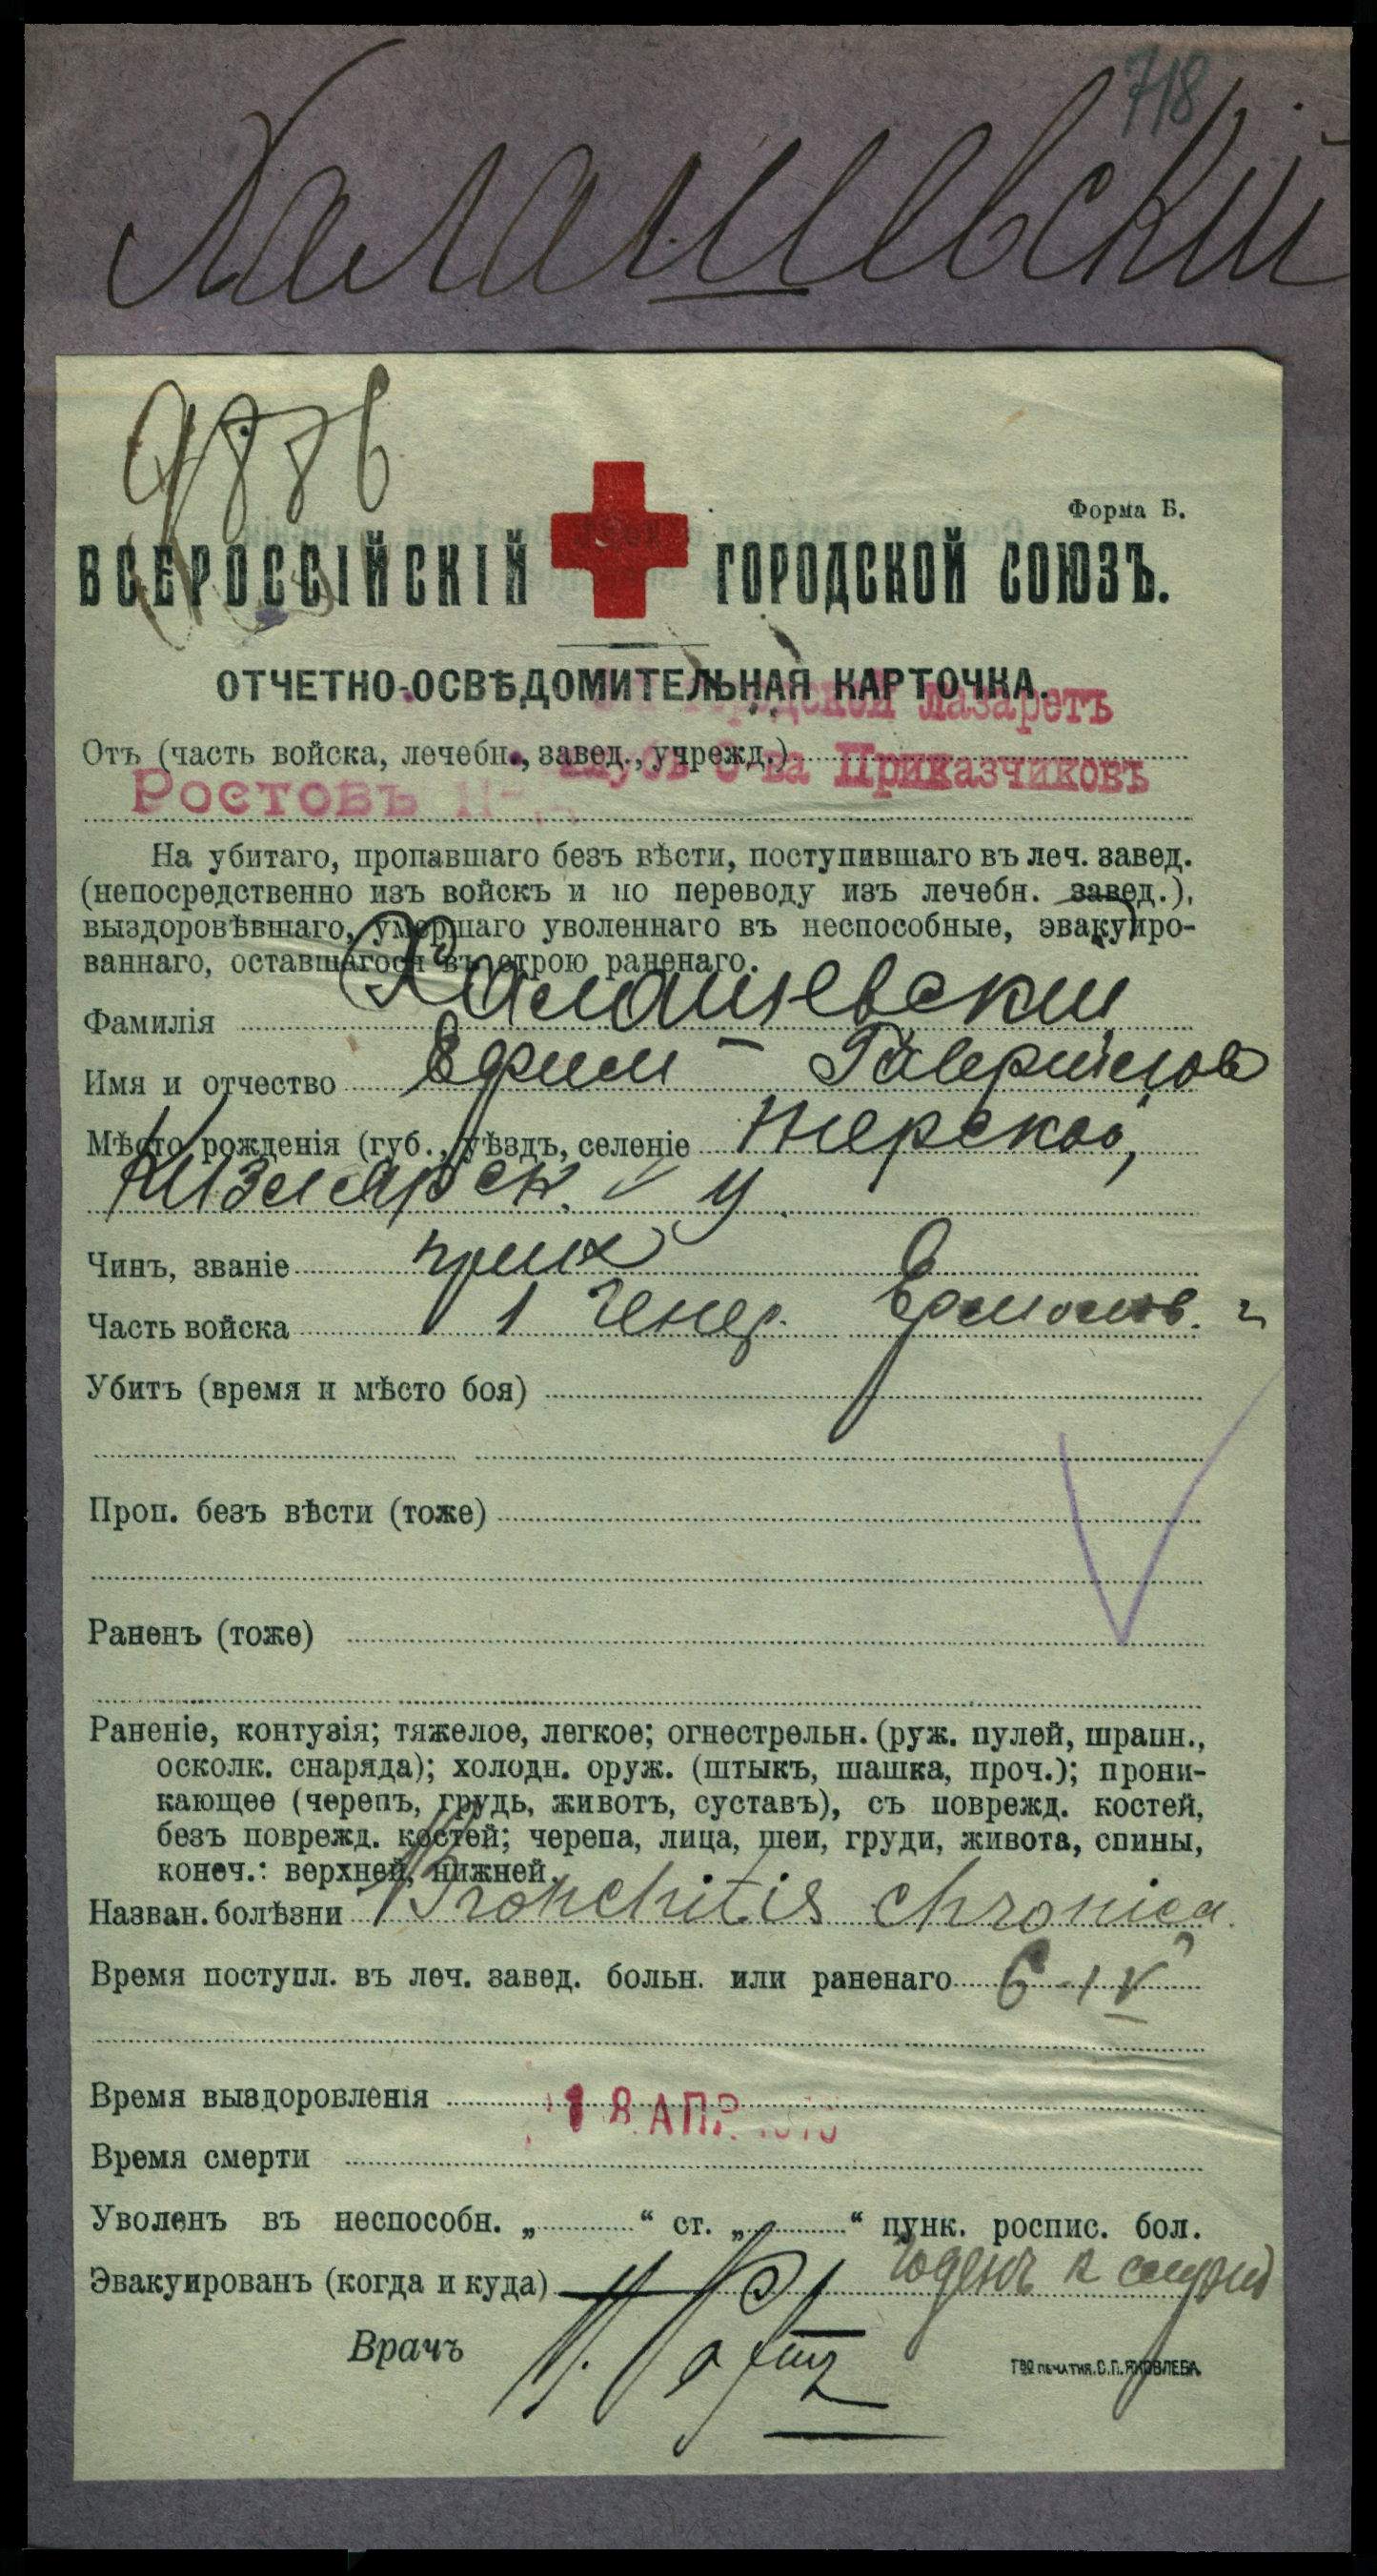 718
Халашевскій
9886
Форма Б.
ВСЕРОССІЙСКІЙ ГОРОДСКОЙ СОЮЗЪ.
ОТЧЕТНО-ОСВѢДОМИТЕЛЬНАЯ КАРТОЧКА.
Городской лазаретъ
Отъ (часть войска, лечебн., завед., учрежд.)
клубъ О-ва Приказчиковъ
Ростовъ Н-Д.
На убитаго, пропавшаго безъ вѣсти, поступившаго въ леч. завед.
(непосредственно изъ войскъ и по переводу изъ лечебн. завед.),
выздоровѣвшаго, умершаго уволеннаго въ неспособные, эвакуиро-
ваннаго, оставшагося въ строю раненаго.
Фамилія Халашевский
Имя и отчество Ефим Гаврилов
Мѣсто рожденія (губ., уѣздъ, селеніе Терской,
Кизлярск. у.
Чинъ, званіе
Часть войска 1 Генер. Ермолов.
Убитъ (время и мѣсто боя)
Проп. безъ вѣсти (тоже)
Раненъ (тоже)
Раненіе, контузія; тяжелое, легкое; огнестрельн. (руж. пулей, шрапн.,
осколк. снаряда); холодн. оруж. (штыкъ, шашка, проч.); прони-
кающее (черепъ, грудь, животъ, суставъ), съ поврежд. костей,
безъ поврежд. костей; черепа, лица, шеи, груди, живота, спины,
конеч.: верхней, нижней.
Назван. болѣзни Bronchitis chronica.
Время поступл. въ леч. завед. больн. или раненаго 6-IV
Время выздоровленія 18 АПР
Время смерти
Уволенъ въ неспособн. „ “ ст. „ “ пунк. роспис. бол.
Эвакуированъ (когда и куда) годенъ к служб
Врачъ
Т-во ПЕЧАТНЯ. С.П. ЯКОВЛЕВА.